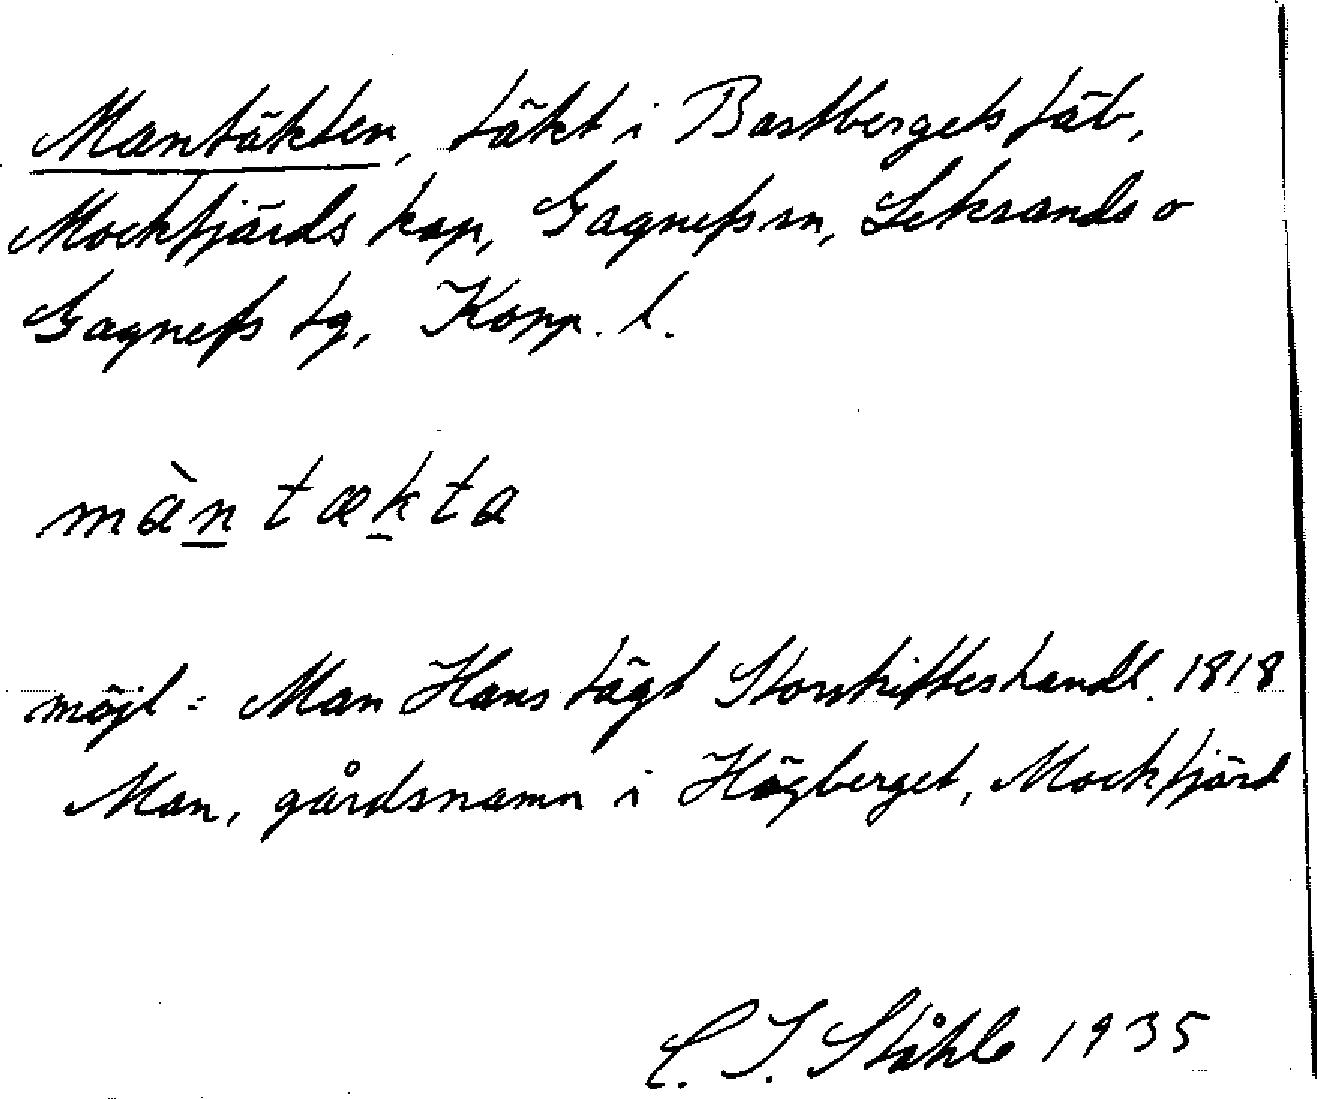 Mantäkten, täkt i Bastbergets fäb,
Mockfjärds kap, Gagnefs sn, Leksands o
Gagnefs tg, Kopp. l.
màn tækta
möjl = Man Hans tägt Storskifteshandl. 1818
Man, gårdsnamn i Högberget, Mockfjärd
C. I. Ståhle 1935